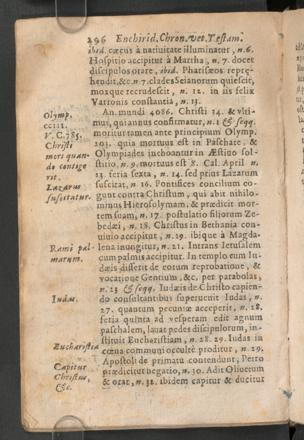 296 Enchirid. Chron. vet. Testam.
ibid. cæcus à natiuitate illuminatur, n. 6.
Hospitio accipitur à Martha, n. 7. docet
discipulos orare, ibid. Pharisæos repre-
hendit, &c. n. 7. clades Seianorum quiescit,
moxque recrudescit, n. 12. in iis felix
Varronis constantia, n. 13.
An. mundi 4086. Christi 34. & vlti-
mus, qui annus confirmatur, n. 1 & seqq.
moritur tamen ante principium Olymp.
203. quia mortuus est in Paschate, &
Olympiades inchoantur in Æstiuo sol-
stitio, n. 9. mortuus est 8. Cal. April n.
13. feria sexta, n. 14. sed prius Lazarum
suscitat, n. 16. Pontifices concilium co-
gunt contra Christum, qui abit nihilo-
minus Hierosolymam, & prædicit mor-
tem suam, n. 17. postulatio filiorum Ze-
bedæi, n. 18. Christus in Bethania con-
uiuio accipitur, n. 19. ibique à Magda-
lena inungitur, n. 21. Intrans Ierusalem
cum palmis accipitur. In templo cum Iu-
dæis disserit de eorum reprobatione, &
vocatione Gentium, &c. per parabolas,
n. 23 & seqq. Iudæis de Christo capien-
do consultantibus superuenit Iudas, n.
27. quantum pecuniæ acceperit, n. 28.
feria quinta ad vesperam edit agnum
paschalem, lauat pedes discipulorum, in-
stituit Eucharistiam, n. 28. 29. Iudas in
cœna communi occultè proditur, n. 29.
Apostoli de primatu contendunt, Petro
prædicitur negatio, n. 30. Adit Oliuetum
& orat, n. 31. ibidem capitur & ducitur
Olymp.
cciii.
V. C. 785.
Christi
mors quan-
do contige-
rit.
Lazarus
suscitatur.
Rami pal-
marum.
Iudas.
Eucharistia
Capitur
Christus,
&c.